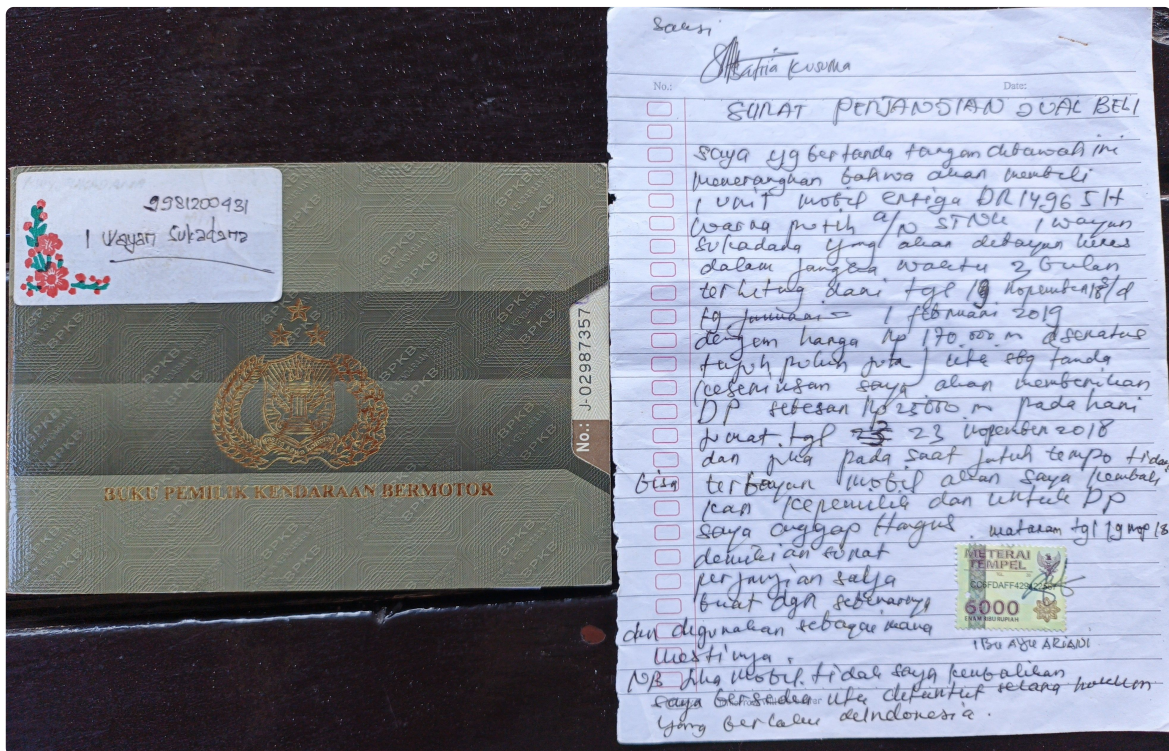 9981200431
I Wayan Sukadana
BPKB
No.: J-02987357
BUKU PEMILIK KENDARAAN BERMOTOR
Saksi
Satria Kusuma
No.:
Date:
SURAT PERJANJIAN JUAL BELI
saya yg bertanda tangan dibawah ini
menerangkan bahwa akan membeli
1 unit mobil ertiga DR 1496 SH
warna putih a/n STNK I wayan
sukadana yang akan dibayar lunas
dalam jangka waktu 3 bulan
terhitung dari tgl 19 Nopember 18 s/d
tg januari 1 februari 2019
dengan harga Rp 170.000.m (seratus
tujuh puluh juta) utk sbg tanda
keseriusan saya akan memberikan
DP sebesar Rp 25000.m pada hari
jumat tgl 23 Nopember 2018
dan jika pada saat jatuh tempo tidak
bisa terbayar mobil akan saya kembali
kan kepemilik dan untuk DP
saya anggap Hangus. mataram tgl 19 nop 18
demikian surat
perjanjian saya
buat dgn sebenarnya
dan digunakan sebagai mana
mestinya.
METERAI
TEMPEL
6000
ENAM RIBU RUPIAH
IBU AYU ARIANI
NB jika mobil tidak saya kembalikan
saya bersedia utk dituntut
yang berlaku diIndonesia.